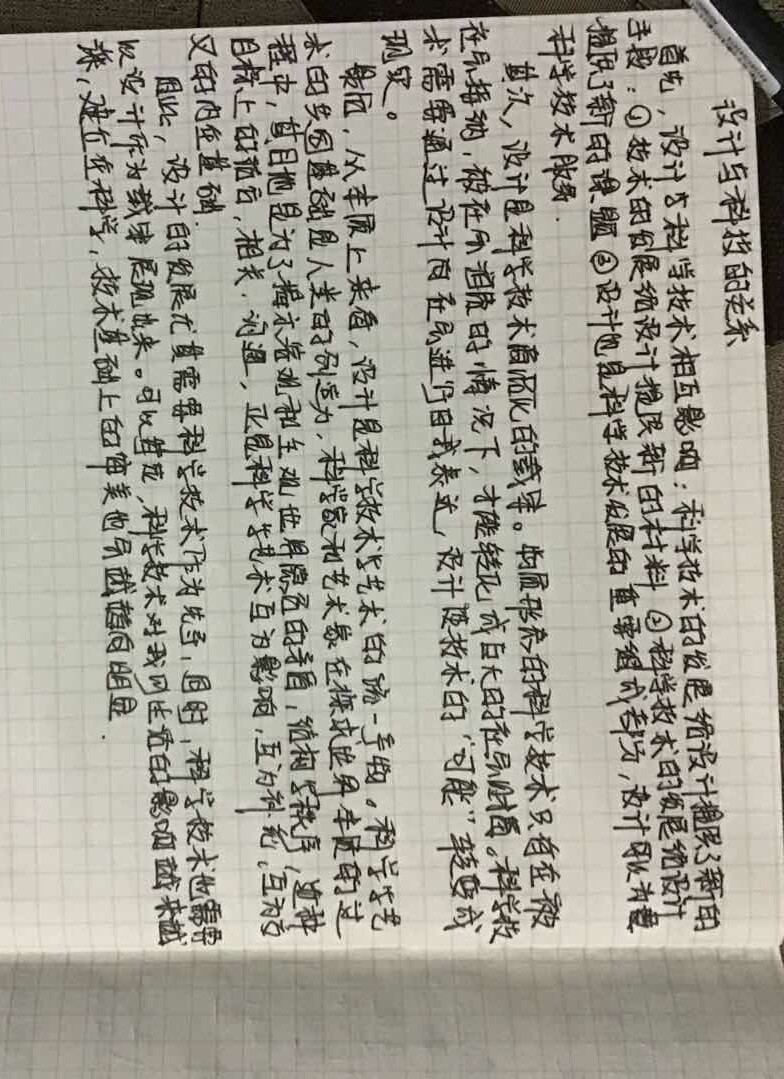 设计与科技的关系
首先，设计与科学技术相互影响：科学技术的发展给设计提供了新的
手段：①技术的发展给设计提供新的材料②科学技术的发展给设计
提供了新的课题③设计也是科学技术发展的重要组成部分，设计可以为
科学技术服务.
其次，设计是科学技术商品化的载体。物质形态的科学技术只有在被
社会接纳，被社会消费的情况下，才能转化成巨大的社会财富。科学技
术需要通过设计向社会进行自我表达，设计使技术的“可能”转变成
现实。
最后，从本质上来看，设计是科学技术与艺术的统一产物。科学与艺
术的共同基础是人类的创造力，科学家和艺术家在探求世界本质的过
程中，其目地是为了揭示客观和主观世界隐后的矛盾，结构与秩序，这种
目标上的统一，相关，沟通，正是科学与艺术互为影响，互为补充，互为
的内在基础.
因此，设计的发展尤其需要科学技术作为先导，同时，科学技术也需要
以设计作为载体展现出来。可以想象，科学技术对我们生活的影响越来越
深，建立在科学，技术基础上的审美也会越趋向明显.